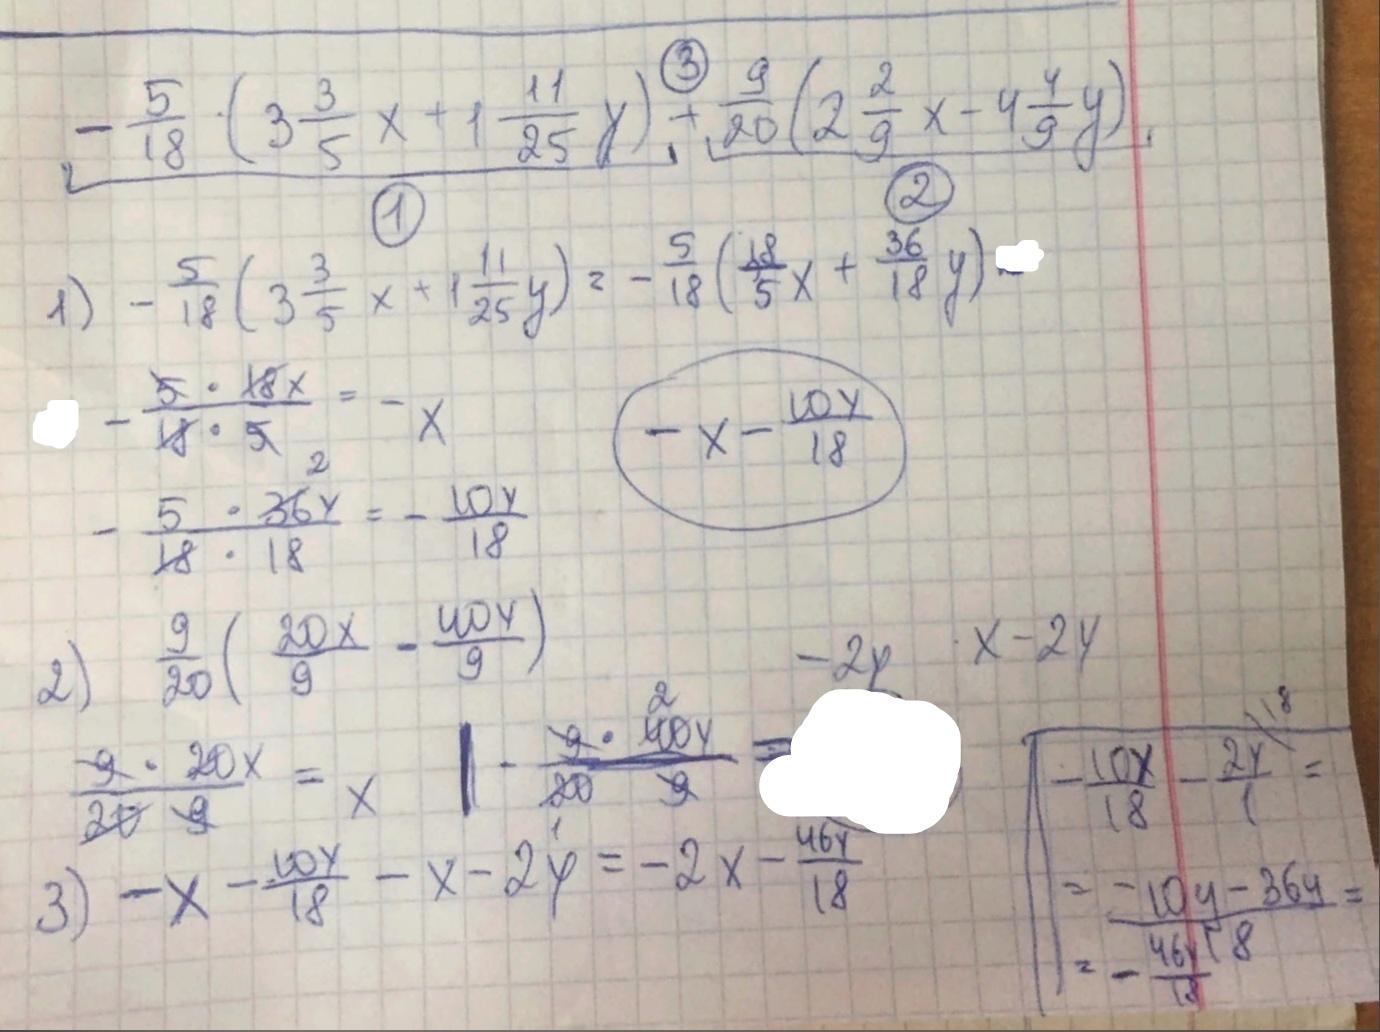 ③
- 5/18 · (3 3/5 x + 1 11/25 y) + 9/20 (2 2/9 x - 4 4/9 y)
① ②
1) - 5/18 (3 3/5 x + 1 11/25 y) = - 5/18 (18/5 x + 36/18 y)
- 5 · 18x / 18 · 5 = - x
- x - 10y/18
2
- 5 · 36y / 18 · 18 = - 10y/18
2) 9/20 (20x/9 - 40y/9)
- 2y · x - 2y
9 · 20x / 20 9 = x | - 9 · 40y / 20 9 =
2
3) - x - 10y/18 - x - 2y = - 2x - 46y/18
1
18
- 10y/18 - 2y/1 =
= - 10y - 36y / 18 =
= - 46y/18